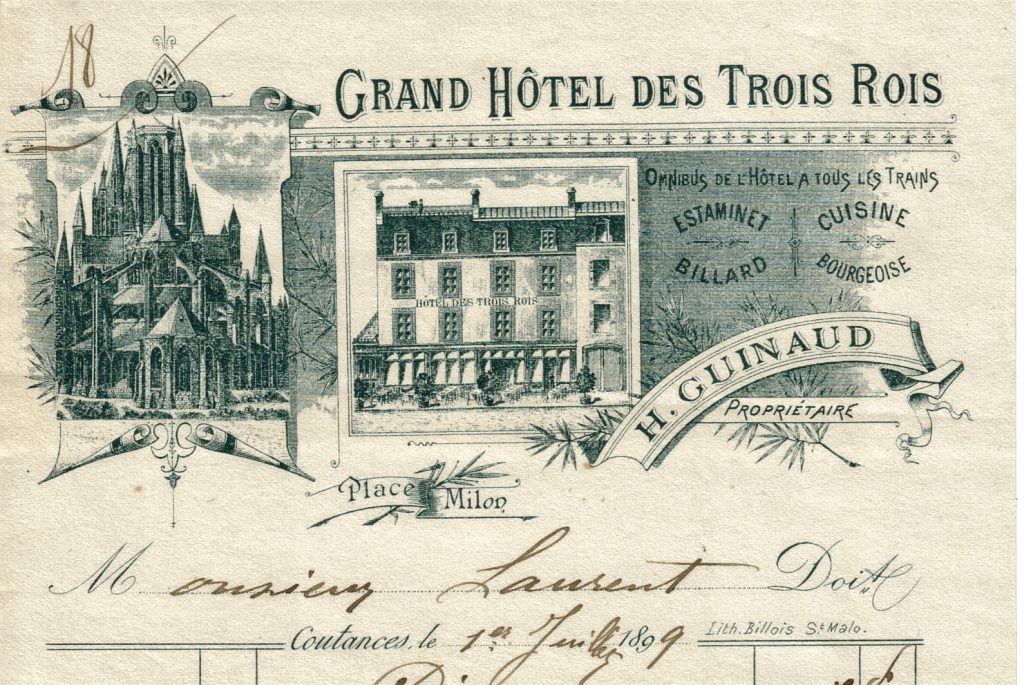 18
GRAND HÔTEL DES TROIS ROIS
OMNIBUS DE L'HÔTEL A TOUS LES TRAINS
ESTAMINET
CUISINE
BILLARD
BOURGEOISE
HÔTEL DES TROIS ROIS
H. GUINAUD
PROPRIÉTAIRE
Place Milon
Monsieur Laurent Doit
Coutances, le 1er Juillet 1899
Lith. Billois St Malo.